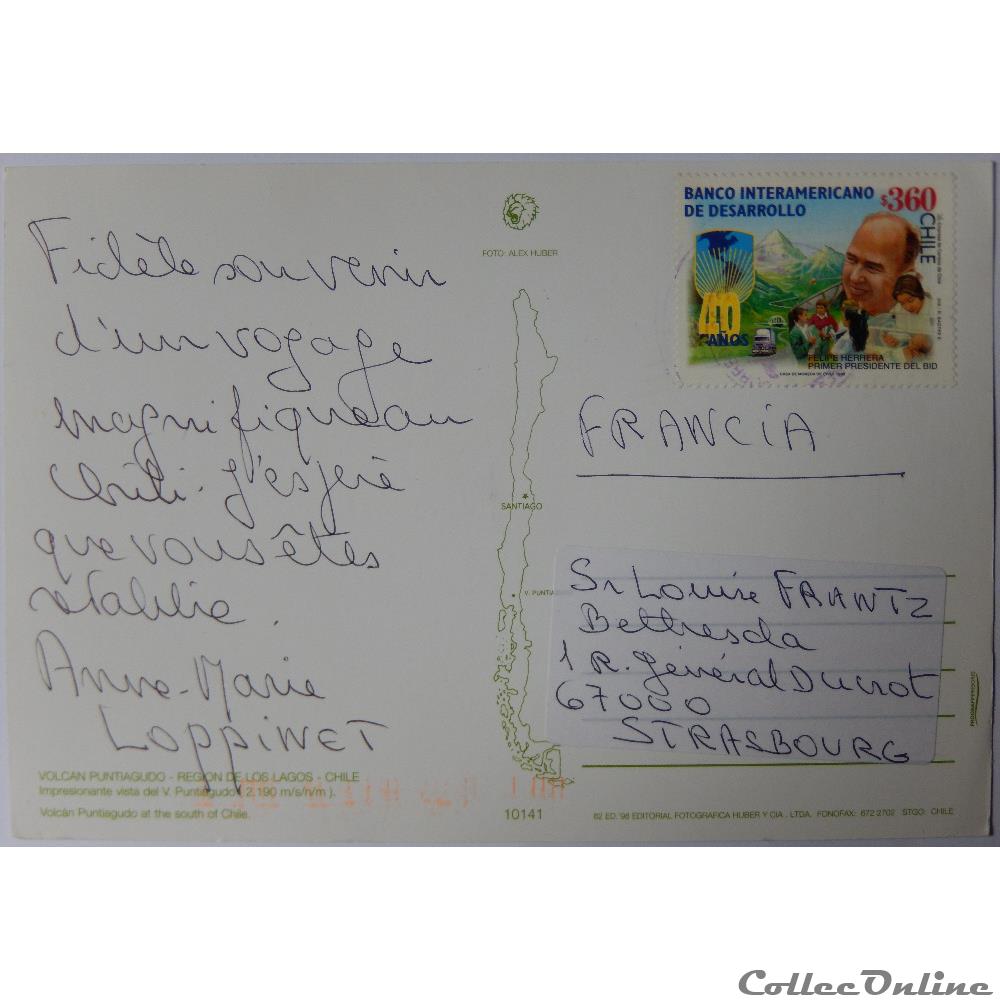 Fidèle souvenir
d'un voyage
magnifique au
Chili. J'espère
que vous êtes
rétablie.
Anne-Marie
LOPPINET
VOLCAN PUNTIAGUDO - REGION DE LOS LAGOS - CHILE
Impresionante vista del V. Puntiagudo ( 2.190 m/s/n/m ).
Volcán Puntiagudo at the south of Chile.
FOTO: ALEX HUBER
SANTIAGO
V. PUNTIA
10141
BANCO INTERAMERICANO
DE DESARROLLO
$360
CHILE
40
AÑOS
FELIPE HERRERA
PRIMER PRESIDENTE DEL BID
CASA DE MONEDA DE CHILE
FRANCIA
Sr Louise FRANTZ
Bethesda
1 R. général Ducrot
67000
STRASBOURG
62 ED. '98 EDITORIAL FOTOGRAFICA HUBER Y CIA . LTDA. FONOFAX: 672 2702 STGO: CHILE
CollecOnline